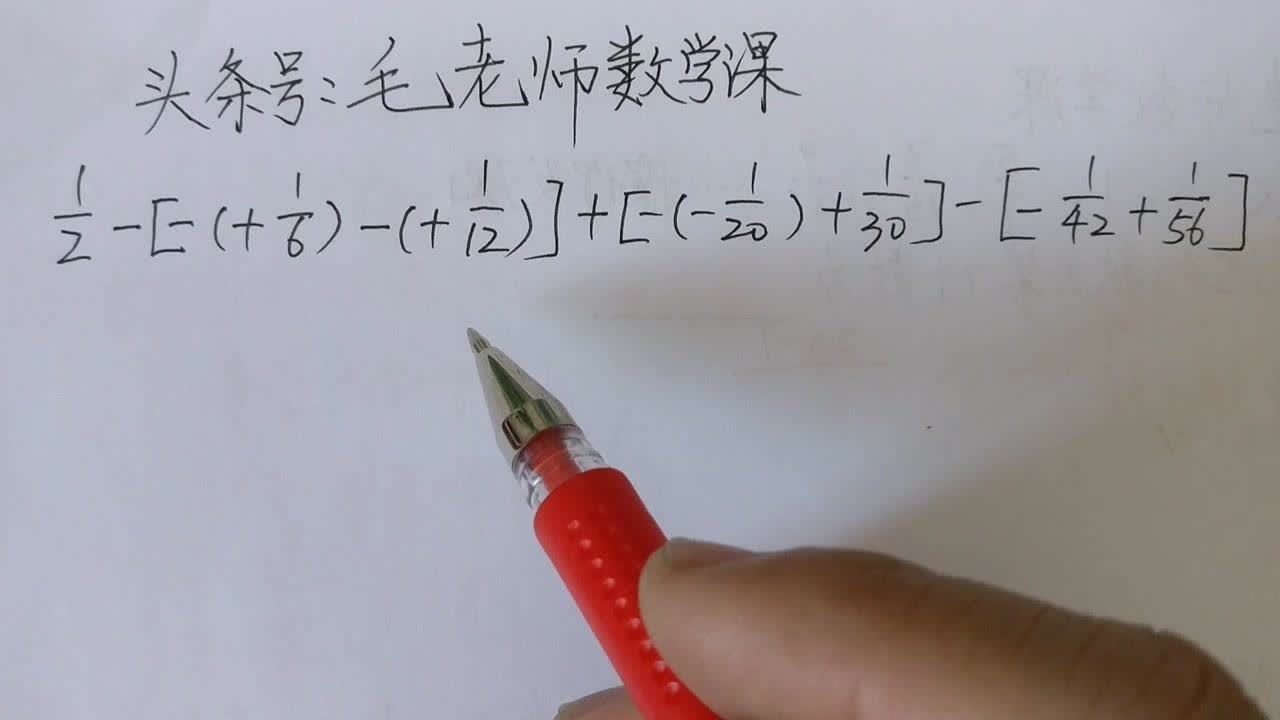 头条号:毛老师数学课
1/2-[-(+1/6)-(+1/12)]+[-(-1/20)+1/30]-[-1/42+1/56]